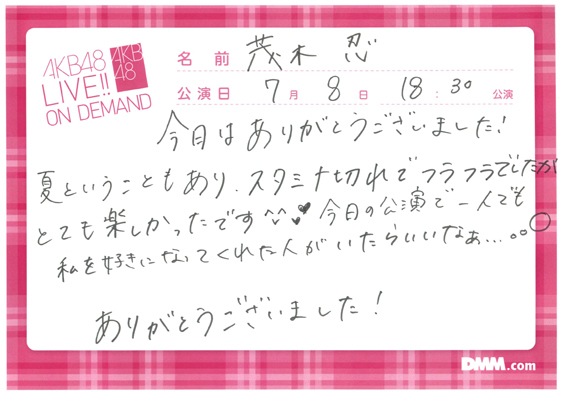 AKB48
LIVE!!
ON DEMAND
AKB
48
名前 茂木 忍
公演日 7月8日 18:30 公演
今日はありがとうございました!
夏ということもあり、スタミナ切れでフラフラでしたが
とても楽しかったです^^♥ 今日の公演で一人でも
私を好きになってくれた人がいたらいいなぁ...。。○
ありがとうございました!
DMM.com